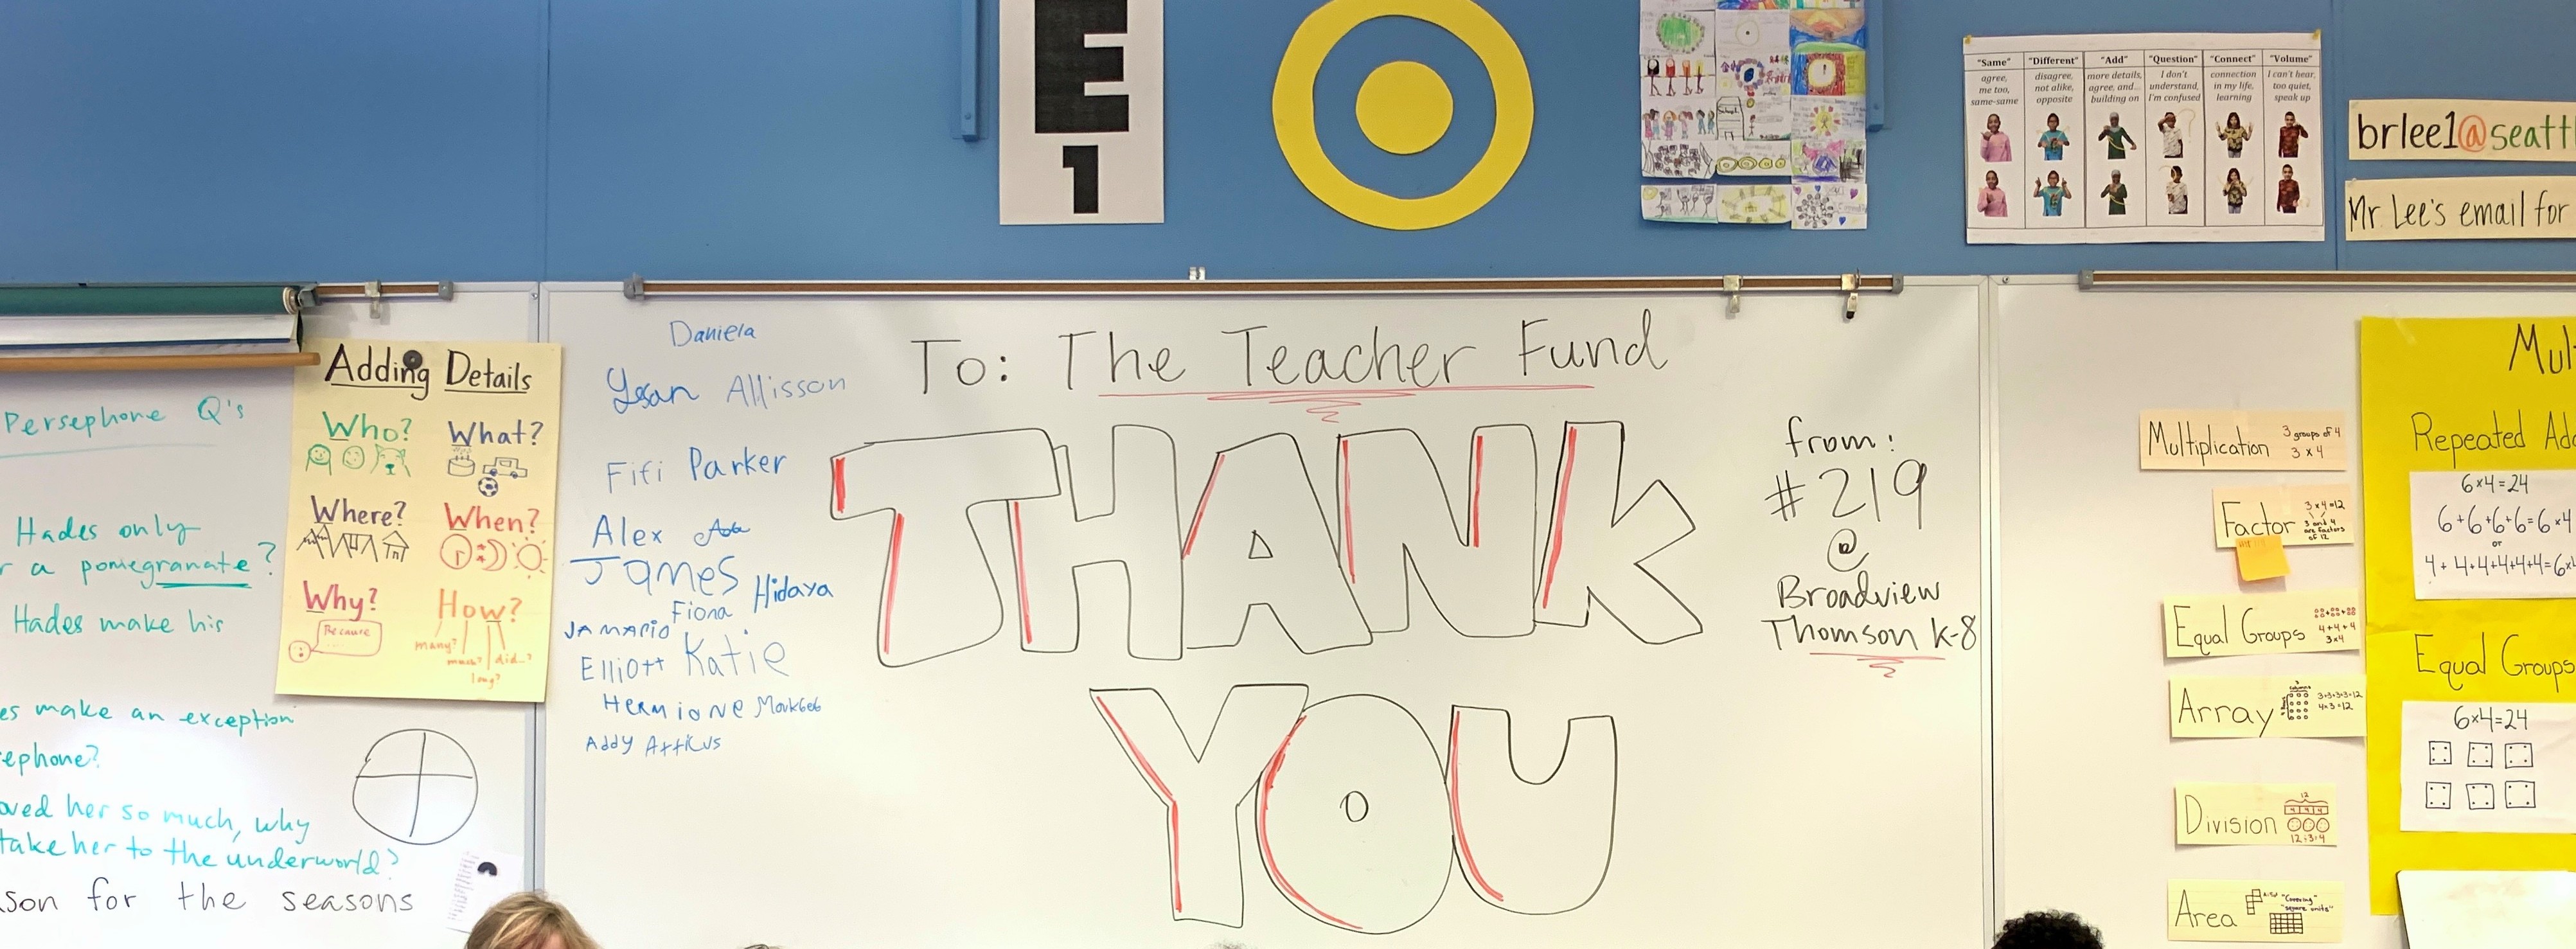 E
1
"Same"
agree,
me too,
same-same
"Different"
disagree,
not alike,
opposite
"Add"
more details,
agree, and...
building on
"Question"
I don't
understand,
I'm confused
"Connect"
connection
in my life,
learning
"Volume"
I can't hear,
too quiet,
speak up
brlee1@seattl
Mr. Lee's email for
Persephone Q's
Hades only
r a pomegranate?
Hades make his
es make an exception
ephone?
oved her so much, why
take her to the underworld?
son for the seasons
Adding Details
Who?
What?
Where?
When?
Why?
Because
How?
many?
much?
did..?
long?
Daniela
Allisson
Fifi Parker
Alex
James
Hidaya
Fiona
JAMARIO
Elliott Katie
Hermione
Addy Atticus
To: The Teacher Fund
THANK
YOU
from:
#219
@
Broadview
Thomson K-8
Multiplication
3 groups of 4
3 x 4
Factor
3 x 4 = 12
3 and 4
are factors
of 12
Equal Groups
4+4+4
3x4
Array
3+3+3+3=12
4x3=12
Division
12
4 4 4
12÷3=4
Area
"Covering"
"square units"
Mul
Repeated Ad
6x4=24
6+6+6+6=6x4
or
4+4+4+4+4+4=6x
Equal Groups
6x4=24